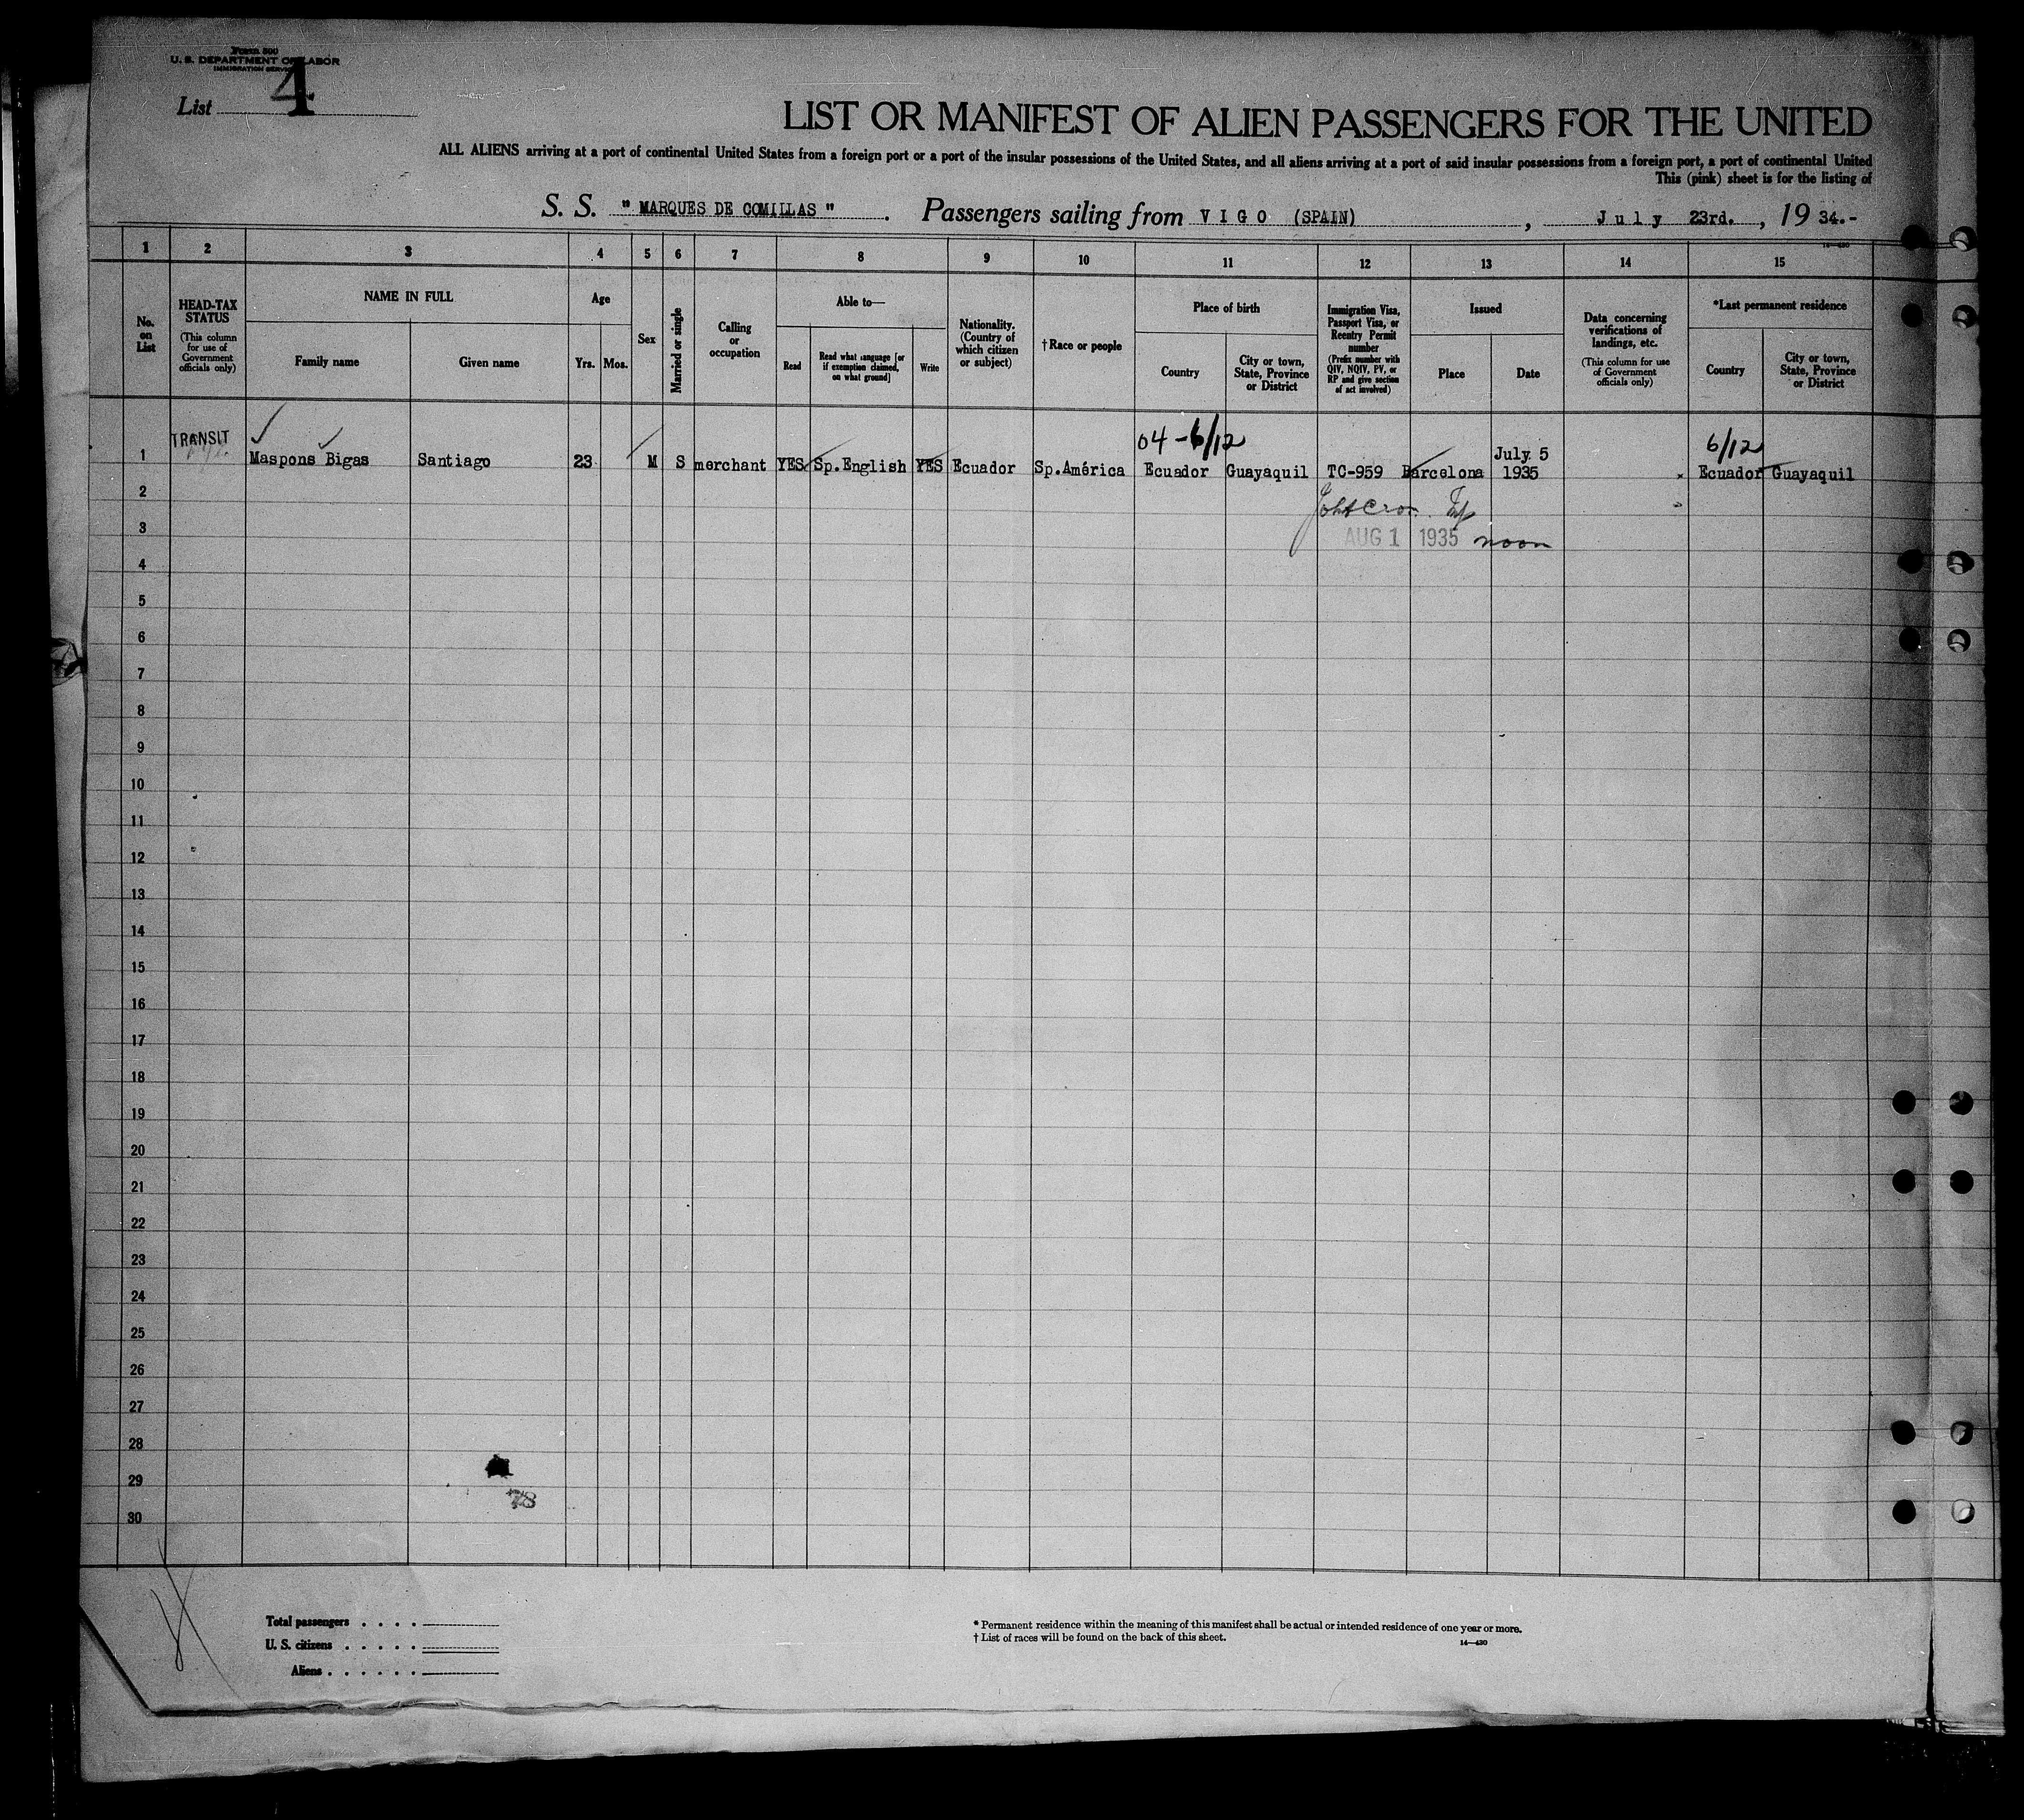 Form 500
U. S. DEPARTMENT OF LABOR
IMMIGRATION SERVICE
List 4
LIST OR MANIFEST OF ALIEN PASSENGERS FOR THE UNITED
ALL ALIENS arriving at a port of continental United States from a foreign port or a port of the insular possessions of the United States, and all aliens arriving at a port of said insular possessions from a foreign port, a port of continental United
This (pink) sheet is for the listing of
S. S. " MARQUES DE COMILLAS ". Passengers sailing from V I G O (SPAIN), J u l y 23rd., 19 34.-
14—430
1 2 3 4 5 6 7 8 9 10 11 12 13 14 15
No. on List
HEAD-TAX STATUS
(This column for use of Government officials only)
NAME IN FULL
Family name
Given name
Age
Yrs.
Mos.
Sex
Married or single
Calling or occupation
Able to—
Read
Read what language [or if exemption claimed, on what ground]
Write
Nationality. (Country of which citizen or subject)
† Race or people
Place of birth
Country
City or town, State, Province or District
Immigration Visa, Passport Visa, or Reentry Permit number
(Prefix number with QIV, NQIV, PV, or RP and give section of act involved)
Issued
Place
Date
Data concerning verifications of landings, etc.
(This column for use of Government officials only)
*Last permanent residence
Country
City or town, State, Province or District
04 - 6/12
6/12
TRANSIT
July 5
1 Maspons Bigas Santiago 23 M S merchant YES Sp.English YES Ecuador Sp.América Ecuador Guayaquil TC-959 Barcelona 1935 Ecuador Guayaquil
2
3 AUG 1 1935 noon
4
5
6
7
8
9
10
11
12
13
14
15
16
17
18
19
20
21
22
23
24
25
26
27
28
29
78
30
Total passengers . . . .
U. S. citizens . . . . .
Aliens . . . . . .
* Permanent residence within the meaning of this manifest shall be actual or intended residence of one year or more.
† List of races will be found on the back of this sheet.
14—430